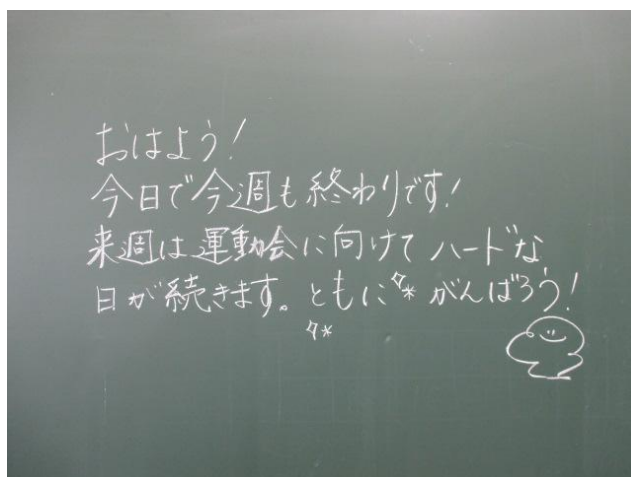 おはよう!
今日で今週も終わりです!
来週は運動会に向けてハードな
日が続きます。ともにがんばろう!